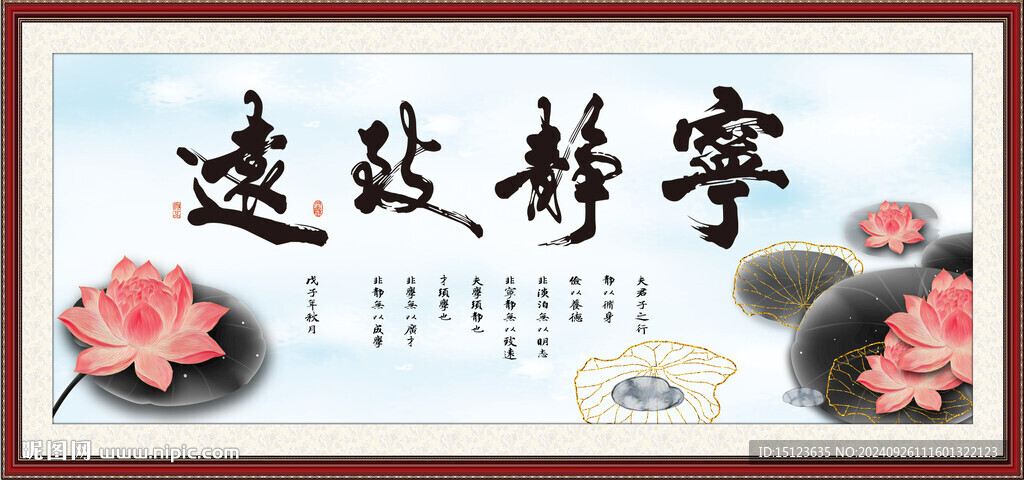 寧靜致遠
夫君子之行
靜以脩身
儉以養德
非淡泊無以明志
非寧靜無以致遠
夫學須靜也
才須學也
非學無以廣才
非靜無以成學
戊子年秋月
昵图网 www.nipic.com
ID:15123635 NO:20240926111601322123